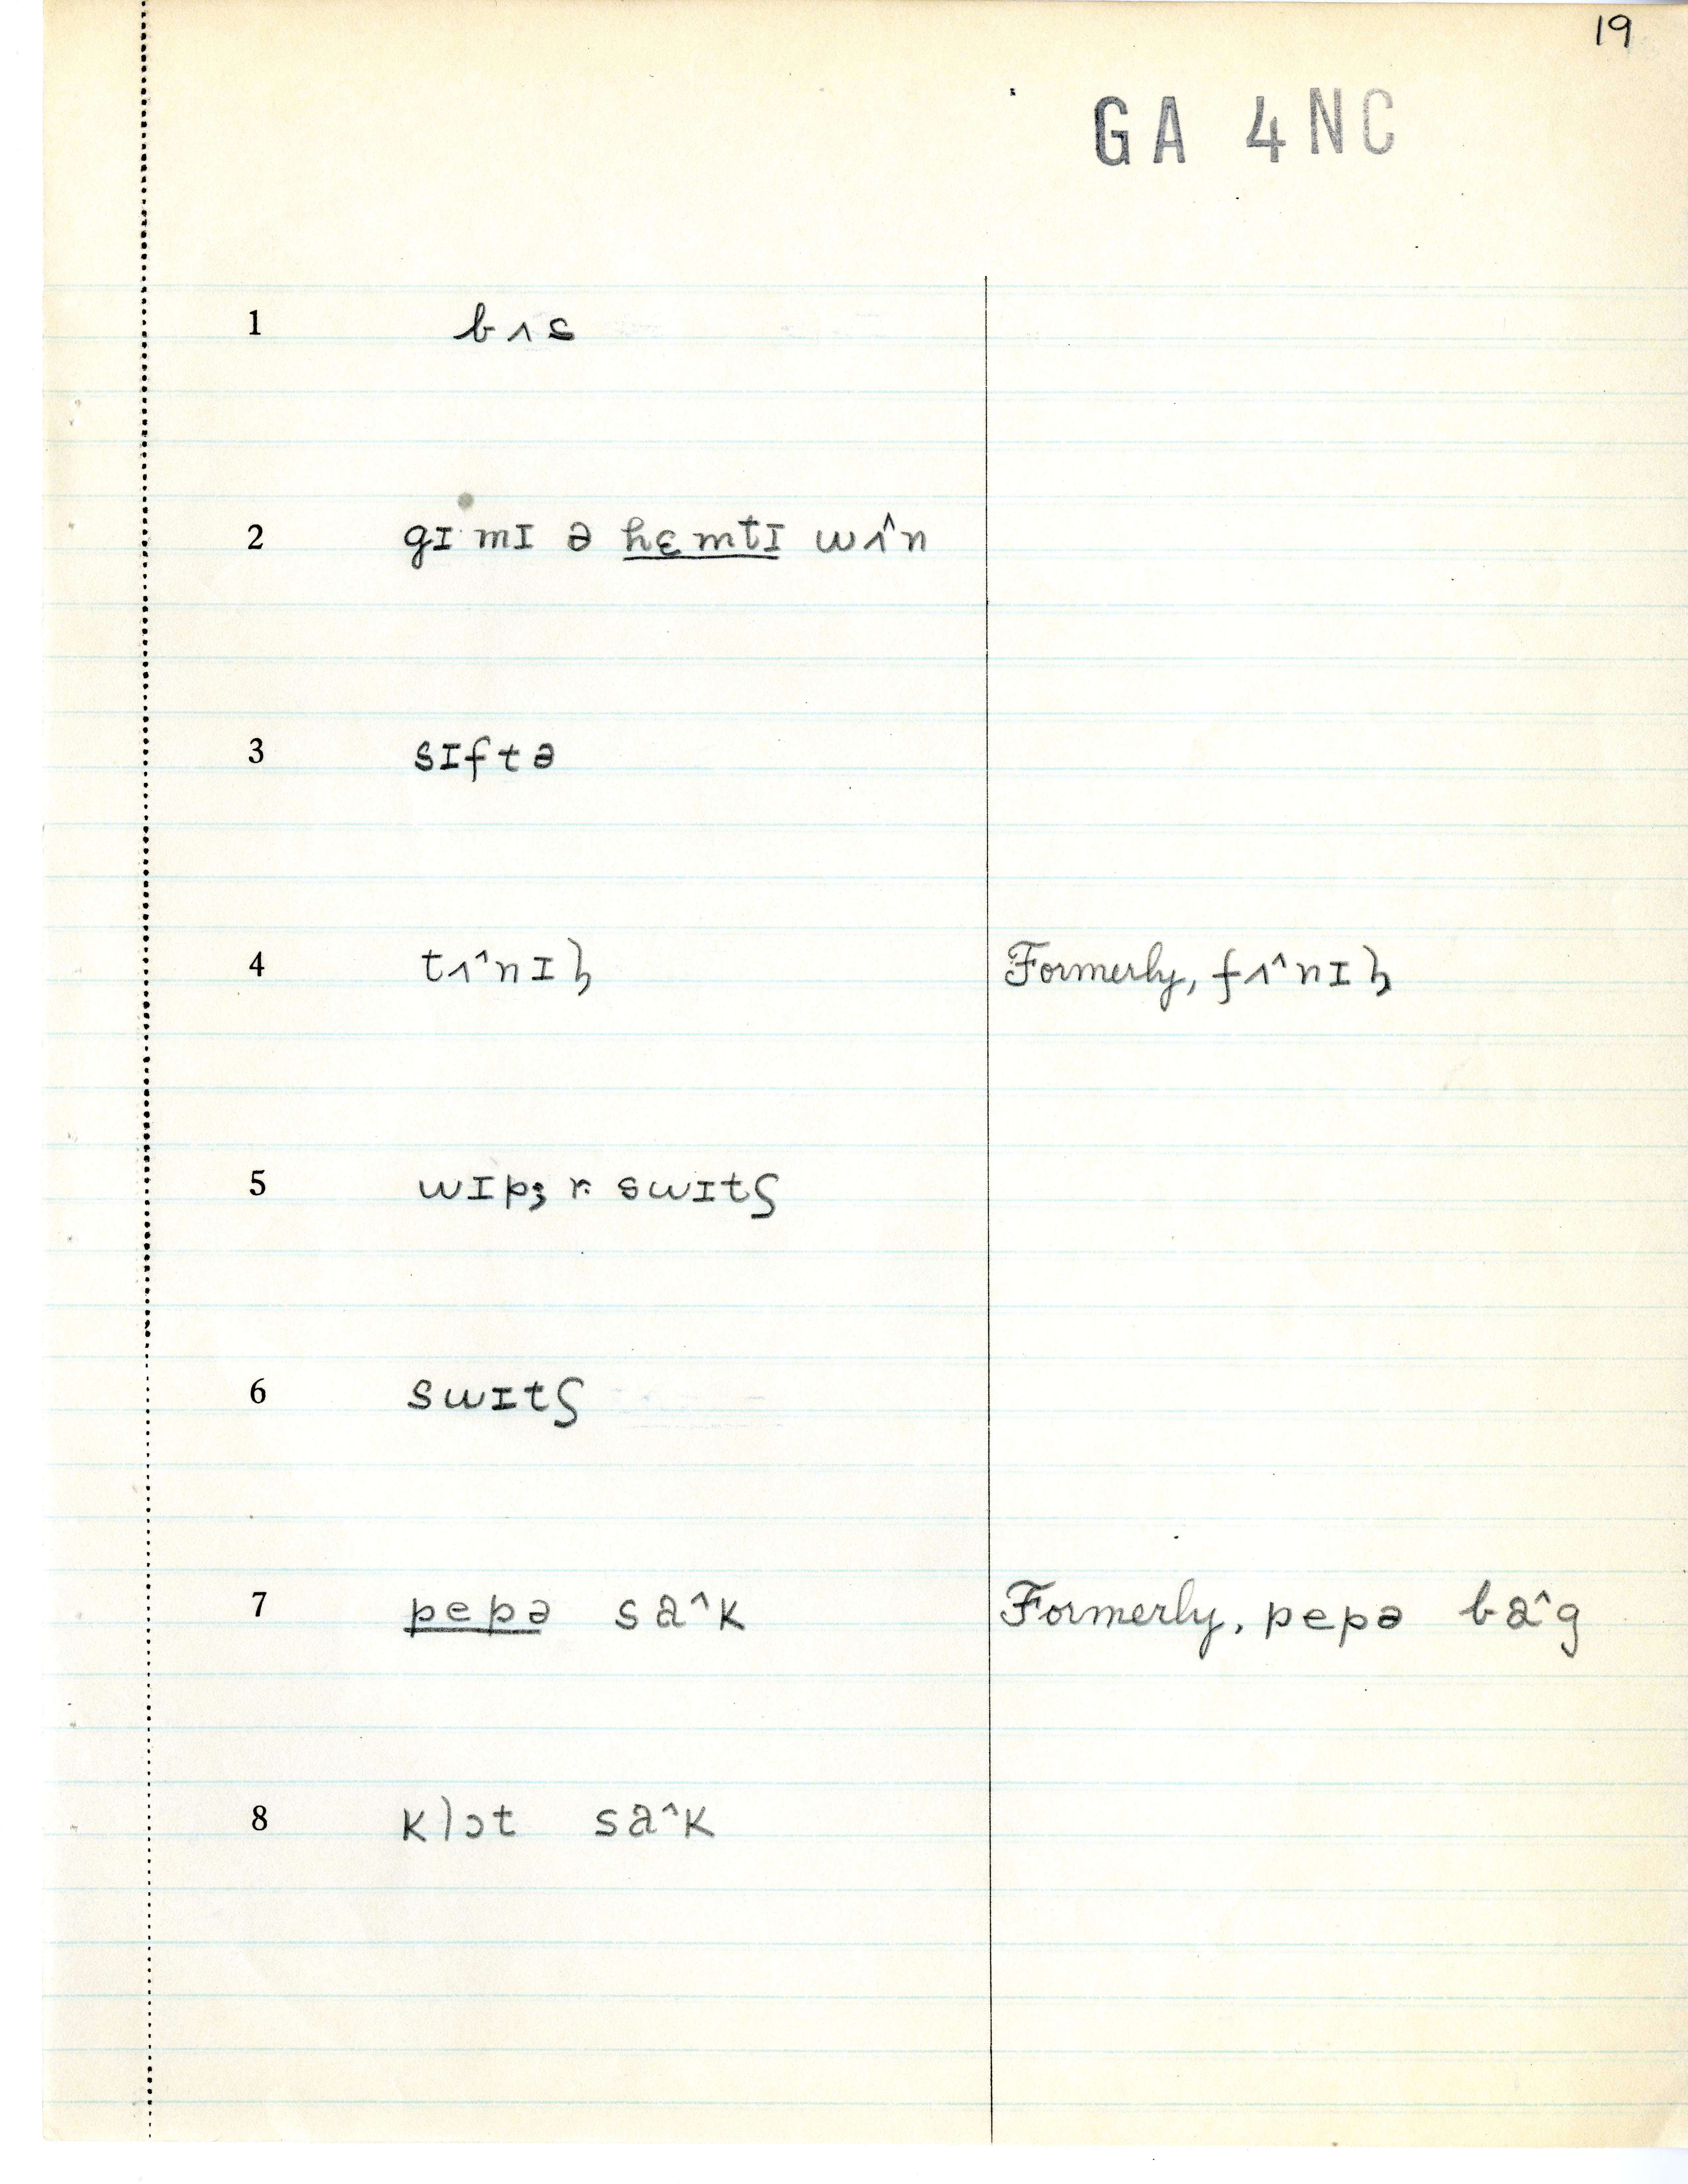 19
GA 4NC
1 bʌs
2 gɪ mɪ ə hɛmtɪ wʌ^n
3 sɪftə
4 tʌ^nɪɫ Formerly, fʌ^nɪɫ
5 wɪpɜ r swɪtʃ
6 swɪtʃ
7 pepə sa^k Formerly, pepə ba^g
8 klɔt sa^k